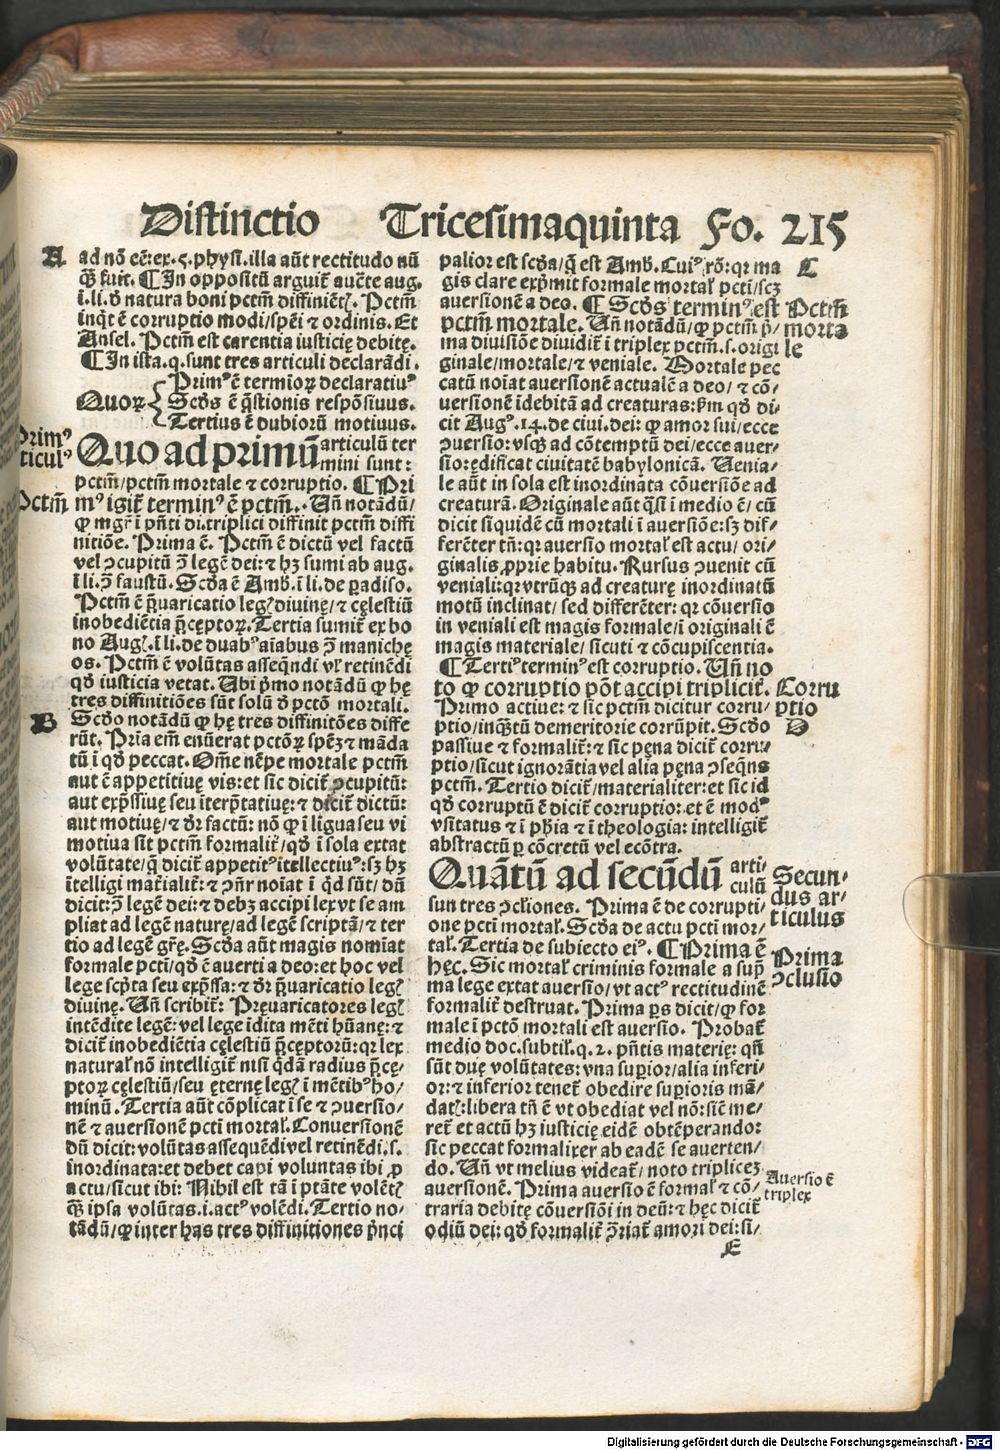 Distinctio Tricesimaquinta Fo. 215
A
ad nō eē: ex .5. physi. illa aūt rectitudo nū
qꝫ fuit. ¶ In oppositū arguit᷑ auc̄te aug.
i. li. ꝺ natura boni pctm̄ diffiniēt᷒. Pctm̄
inq̇t ē corruptio modi/ spēi ⁊ ordinis. Et
Ansel. Pctm̄ est carentia iusticię debitę.
¶ In ista .q. sunt tres articuli declarādi.
Quoꝝ
Prim⁹ ē termioꝝ declaratiu⁹
Scds ē q̄stionis respōsiuus.
Tertius ē dubiorū motiuus.
Prim⁹
ticul⁹
Quo ad primū articulū ter
mini sunt:
pctm̄/ pctm̄ mortale ⁊ corruptio. ¶ Pri
Pctm̄
m⁹ igit᷑ termin⁹ ē pctm̄. Uñ notādū/
ꝙ mgr̄ i pn̄ti di. triplici diffinit pctm̄ diffi
nitiōe. Prima ē. Pctm̄ ē dictū vel factū
vel ꝯcupitū ꝯ̄ legē dei: ⁊ hꝫ sumi ab aug.
ī li. ꝯ̄ faustū. Scda ē Amb. ī li. de ꝑadiso.
Pctm̄ ē p̄uaricatio leg᷒ diuinę/ ⁊ cęlestiū
inobediētia p̄ceptoꝝ. Tertia sumit᷑ ex bo
no Aug᷒. ī li. de duab⁹ aiabus ꝯ̄ manichę
os. Pctm̄ ē volūtas asseq̄ndi vl̕ retinēdi
qd̕ iusticia vetat. Ubi p̄mo notādū ꝙ hę
tres diffinitiōes sūt solū ꝺ pctō mortali.
B
Scdo notādū ꝙ hę tres diffinitōes diffe
rūt. Pria em̄ enūerat pctōꝝ spēꝫ ⁊ māda
tū i qd̕ peccat. Om̄e nēpe mortale pctm̄
aut ē appetitiuę vis: et sic dicit᷑ ꝯcupitū:
aut exp̄ssiuę seu iterp̄tatiuę: ⁊ dicit᷑ dictū:
aut motiuę/ ⁊ dr̄ factū: nō ꝙ i ligua seu vi
motiua sit pctm̄ formalit᷑/ qd̕ ī sola extat
volūtate/ q̄ dicit᷑ appetit⁹ ītellectiu⁹: sꝫ hꝫ
ītelligi mat̕ialit᷑: ⁊ ꝯn̄r noīat ī q̇d sūt/ dū
dicit: ꝯ̄ legē dei: ⁊ debꝫ accipi lex vt se am
pliat ad legē naturę/ ad legē scriptā/ ⁊ ter
tio ad legē gr̄ę. Scda aūt magis nomīat
formale pcti/ qd̕ ē auerti a deo: et hoc vel
lege scp̄ta seu exp̄ssa: ⁊ dr̄ p̄uaricatio leg᷒
diuinę. Uñ scribit᷑: Pręuaricatores leg᷒
intēdite legē: vel lege īdita mēti hūanę: ⁊
dicit᷑ inobediētia cęlestiū p̄ceptorū: qr lex
natural̕ nō intelligit᷑ nisi q̄dā radius p̄ce/
ptoꝝ cęlestiū/ seu ęternę leg᷒ ī mētib⁹ ho/
minū. Tertia aūt cōplicat i se ⁊ ꝯuersio/
nē ⁊ auersionē pcti mortal̕. Conuersionē
dū dicit: volūtas assequēdi vel retinēdi .s.
inordinata: et debet capi voluntas ibi ꝓ
actu/ sicut ibi: Nihil est tā i ptāte volēt᷒
qꝫ ipsa volūtas. i. act⁹ volēdi. Tertio no/
tādū/ ꝙ inter has tres diffinitiones p̄nci
palior est scda/ q̄ est Amb. Cui⁹ rō: qr ma
C
gis clare exp̄mit formale mortal̕ pcti/ scꝫ
auersionē a deo. ¶ Scds termin⁹ est
Pctm̄
morta
le
pctm̄ mortale. Uñ notādū/ ꝙ pctm̄ p̄/
ma diuisiōe diuidit᷑ ī triplex pctm̄ .s. origi
ginale/ mortale/ ⁊ veniale. Mortale pec
catū noīat auersionē actualē a deo/ ⁊ cō/
uersionē īdebitā ad creaturas: ẜm qd̕ di/
cit Aug⁹ .14. de ciui. dei: ꝙ amor sui/ ecce
ꝯuersio: vsqꝫ ad cōtemptū dei/ ecce auer/
sio: ędificat ciuitatē babylonicā. Uenia/
le aūt in sola est inordinata cōuersiōe ad
creaturā. Originale aūt q̄si ī medio ē/ cū
dicit siquidē cū mortali ī auersiōe: sꝫ dif/
ferēter tn̄: qr auersio mortal̕ est actu/ ori/
ginalis ꝓprie habitu. Rursus ꝯuenit cū
veniali: qr vtrūqꝫ ad creaturę inordinatū
motū inclinat/ sed differēter: qr cōuersio
in veniali est magis formale/ ī originali ē
magis materiale/ sicuti ⁊ cōcupiscentia.
¶ Terti⁹ termin⁹ est corruptio. Uñ no
to ꝙ corruptio pōt accipi triplicit᷑.
Corru
ptio
D
Primo actiue: ⁊ sic pctm̄ dicitur corru/
ptio/ inqꝫtū demeritorie corrūpit. Scdo
passiue ⁊ formalit᷑: ⁊ sic pęna dicit᷑ corru/
ptio/ sicut ignorātia vel alia pęna ꝯseq̄ns
pctm̄. Tertio dicit᷑/ materialiter: et sic id
qd̕ corruptū ē dicit᷑ corruptio: et ē mod⁹
vsitatus ⁊ ī ph̄ia ⁊ ī theologia: intelligit᷑
abstractū ꝑ cōcretū vel ecōtra.
Quātū ad secūdū arti/
culū
Secun/
dus ar/
ticulus
sun tres ꝯcl̕iones. Prima ē de corrupti/
one pcti mortal̕. Scda de actu pcti mor/
tal̕. Tertia de subiecto ei⁹. ¶ Prima ē
Prima
ꝯclusio
hęc. Sic mortal̕ criminis formale a sup̄
ma lege extat auersio/ vt act⁹ rectitudinē
formalit᷑ destruat. Prima ꝑs dicit/ ꝙ for
male ī pctō mortali est auersio. Probat᷑
medio doc. subtil̕. q. 2. pn̄tis materię: qn̄
sūt duę volūtates: vna suꝑior/ alia inferi/
or: ⁊ inferior tenet᷑ obedire suꝑioris mā/
dat᷒: libera tn̄ ē vt obediat vel nō: sic̄ me/
ret᷑ et actū hꝫ iusticię eidē obtēperando:
sic peccat formalixer ab eadē se auerten/
do. Uñ vt melius videat᷑/ noto tripliceꝫ
Auersio ē
triplex
auersionē. Prima auersio ē formal̕ ⁊ cō/
traria debitę cōuersiōi in deū: ⁊ hęc dicit᷑
odiū dei: qd̕ formalit᷑ ꝯ̄riat᷑ amori dei: si/
E
Digitalisierung gefördert durch die Deutsche Forschungsgemeinschaft - DFG